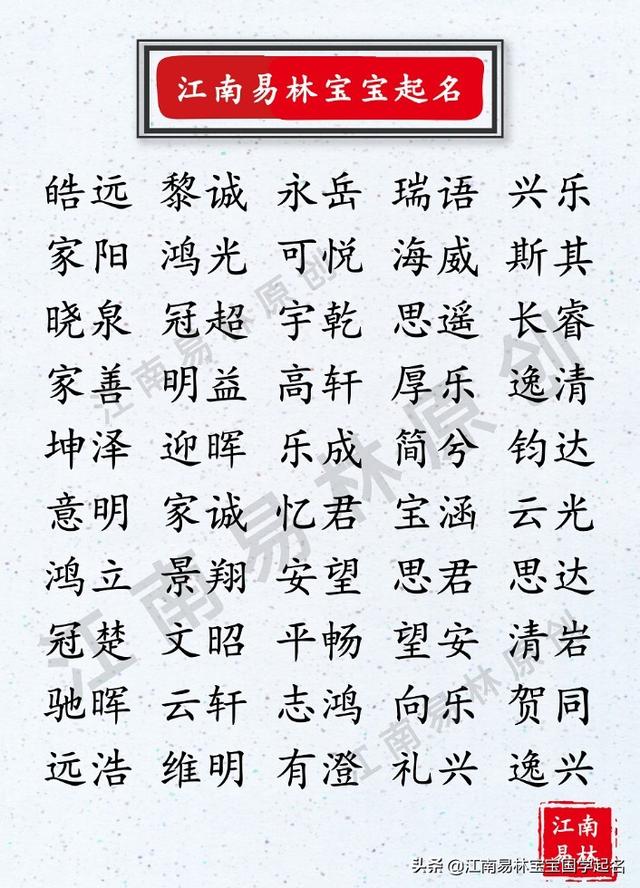 江南易林宝宝起名
皓远 黎诚 永岳 瑞语 兴乐
家阳 鸿光 可悦 海威 斯其
晓泉 冠超 宇乾 思遥 长睿
家善 明益 高轩 厚乐 逸清
坤泽 迎晖 乐成 简兮 钧达
意明 家诚 忆君 宝涵 云光
鸿立 景翔 安望 思君 思达
冠楚 文昭 平畅 望安 清岩
驰晖 云轩 志鸿 向乐 贺同
远浩 维明 有澄 礼兴 逸兴
江南易林原创
江南易林原创
江南易林原创
江南
易林
头条 @江南易林宝宝国学起名